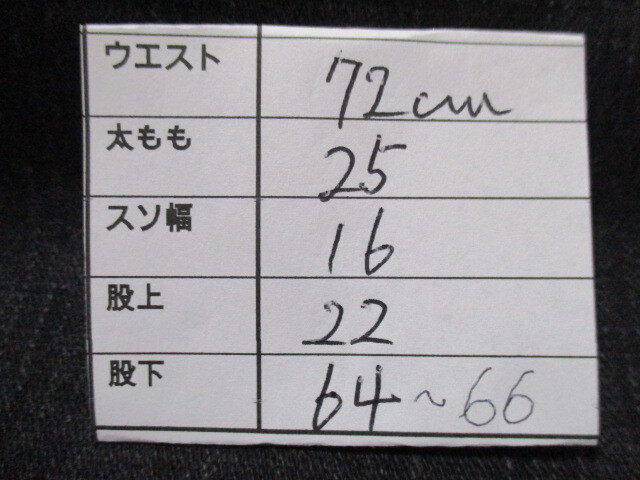 ウエスト 72cm
太もも 25
スソ幅 16
股上 22
股下 64~66